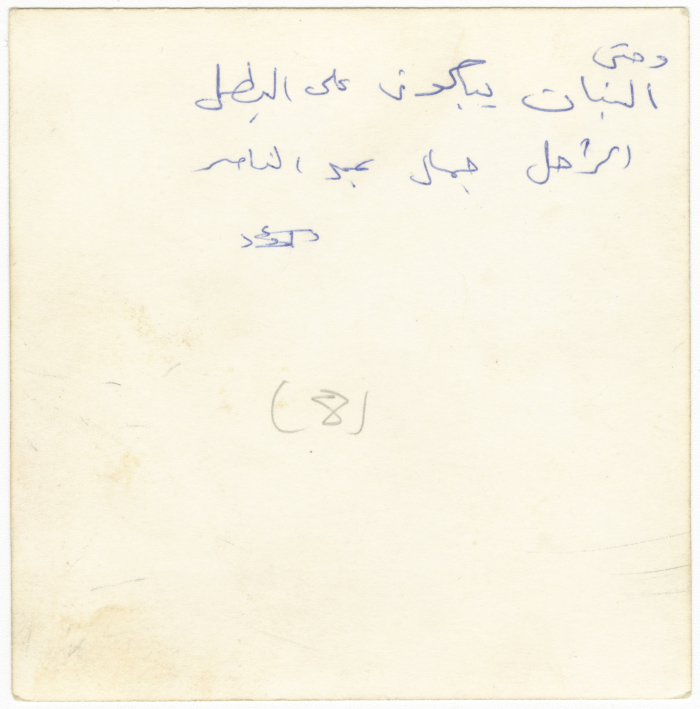 وحتى
البنات يبكون على البطل
الراحل جمال عبد الناصر
(8)